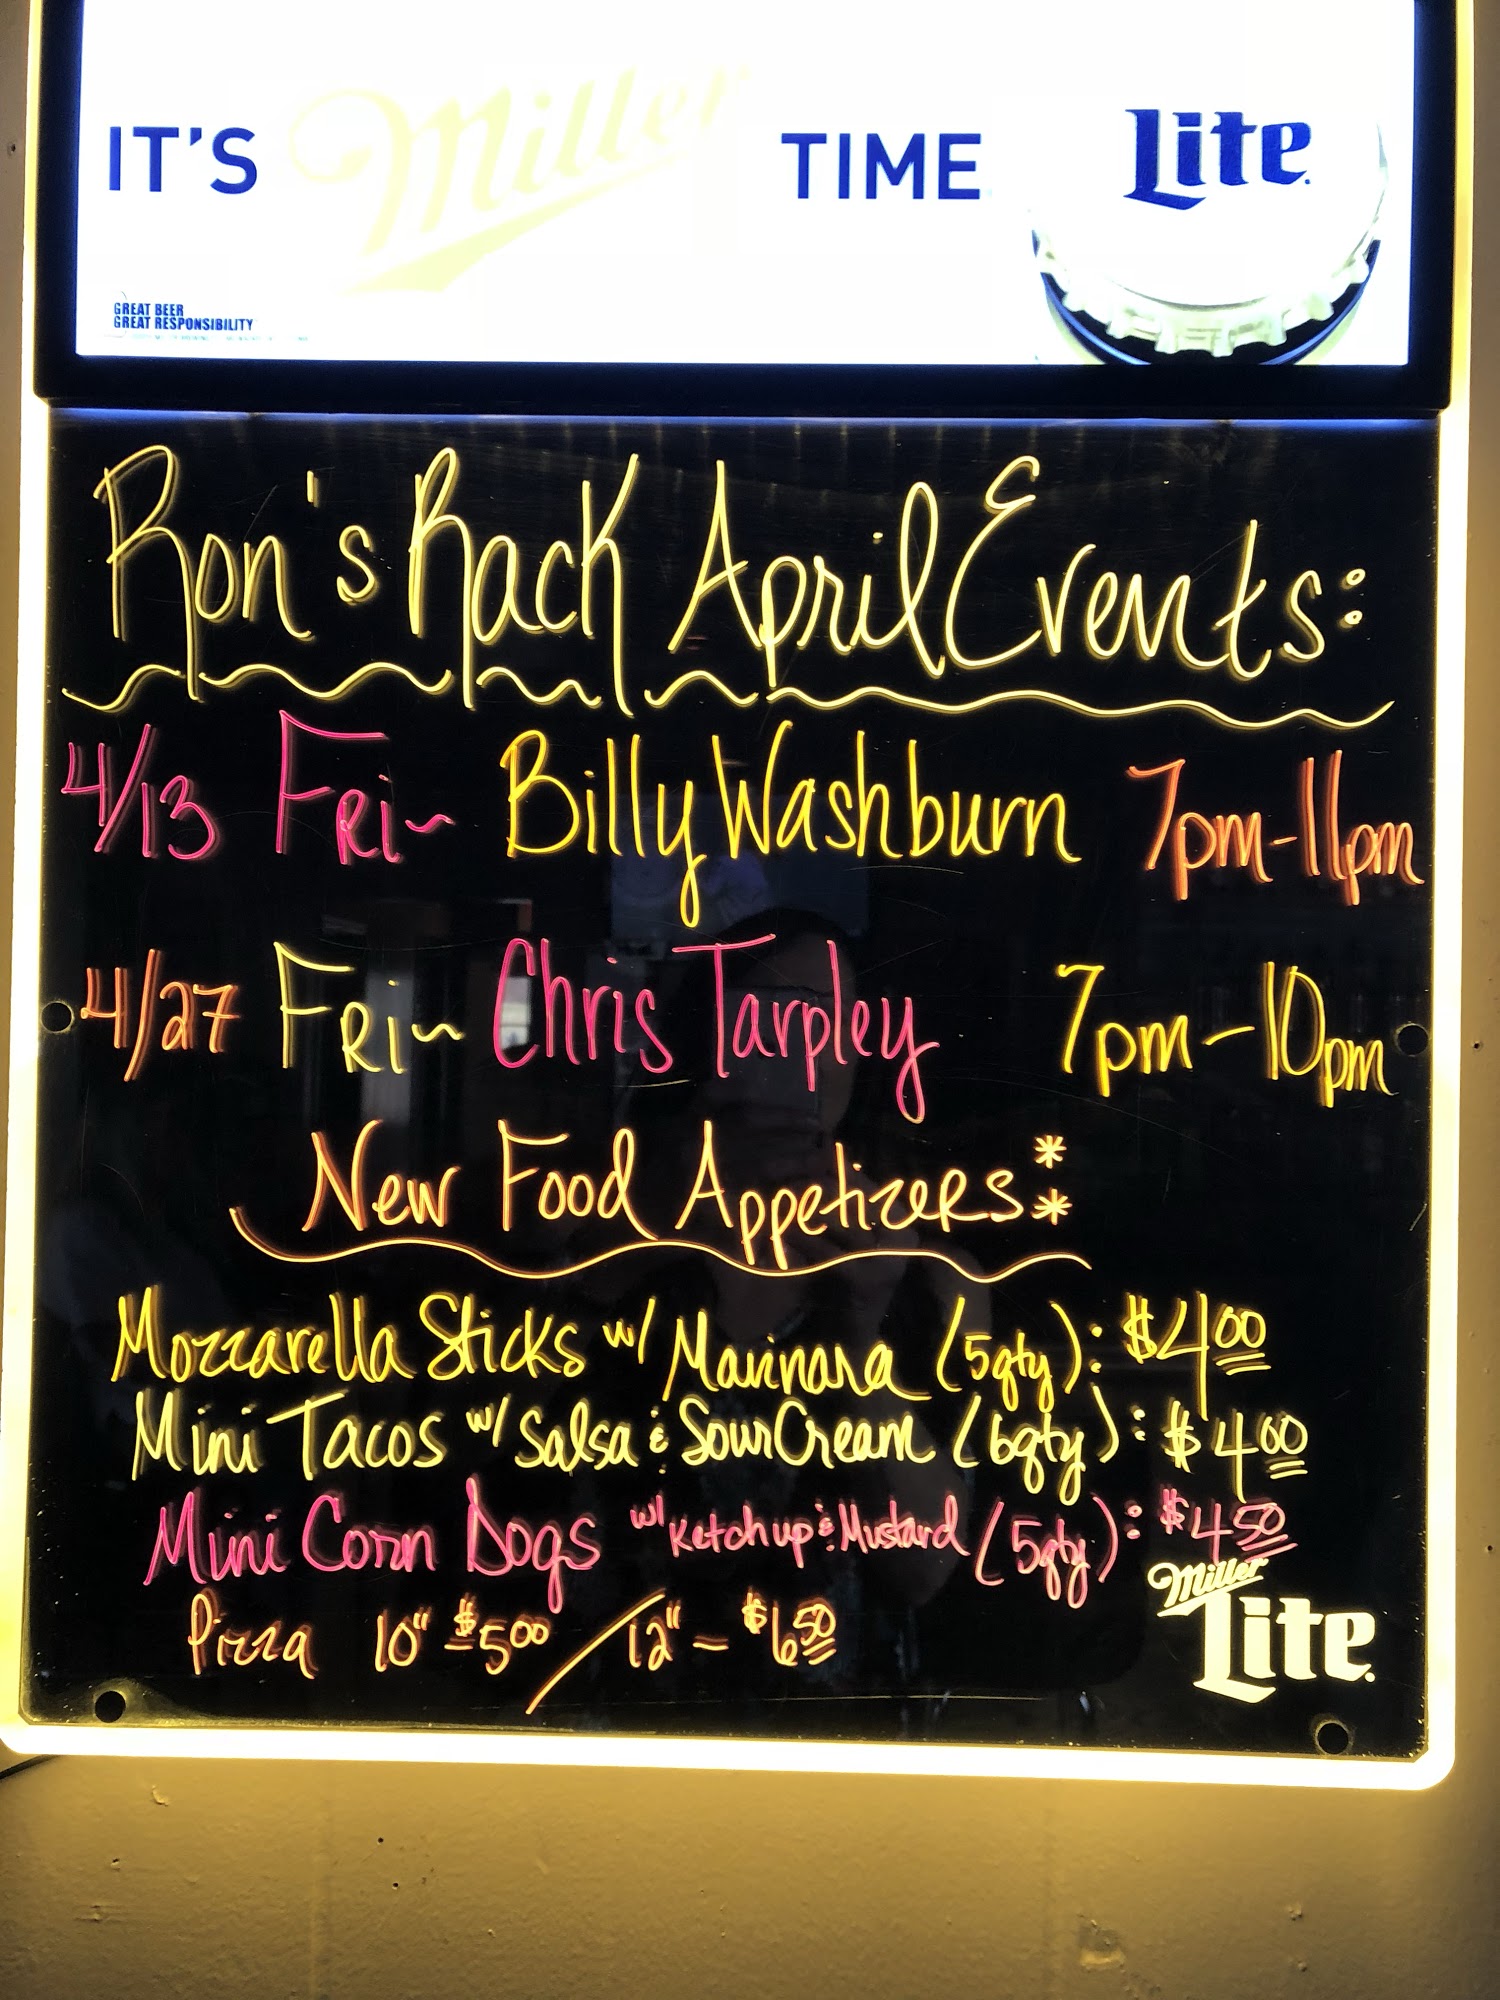 IT'S Miller TIME Lite
GREAT BEER
GREAT RESPONSIBILITY
Ron's Rack April Events:
4/13 Fri~ Billy Washburn 7pm-11pm
4/27 Fri~ Chris Tarpley 7pm-10pm
New Food Appetizers:
Mozzarella Sticks w/ Marinara (5qty): $4.00
Mini Tacos w/ Salsa & Sour Cream (6qty): $4.00
Mini Corn Dogs w/ Ketchup & Mustard (5qty): $4.50
Pizza 10" $5.00 / 12" - $6.50
Miller
Lite